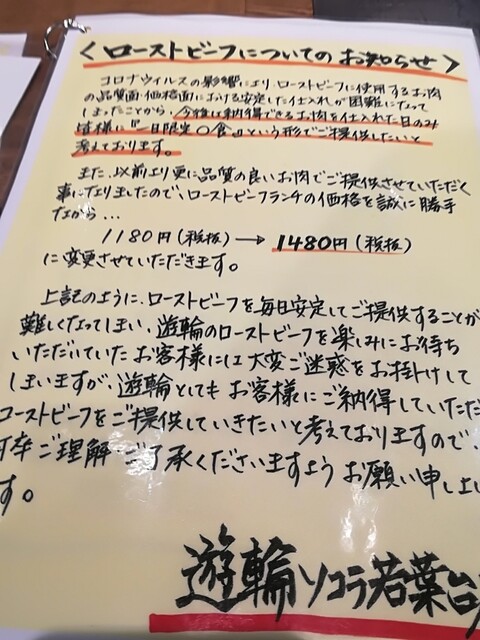 〈ローストビーフについてのお知らせ〉
コロナウィルスの影響により、ローストビーフに使用するお肉
の品質面・価格面における安定した仕入れが困難になって
しまったことから、今後は納得できるお肉を仕入れた日のみ
皆様に『一日限定〇食』という形でご提供したいと
考えております。
また、以前より更に品質の良いお肉でご提供させていただく
事になりましたので、ローストビーフランチの価格を誠に勝手
ながら…
1180円(税抜)→1480円(税抜)
に変更させていただきます。
上記のように、ローストビーフを毎日安定してご提供することが
難しくなってしまい、遊輪のローストビーフを楽しみにお待ち
いただいていたお客様には大変ご迷惑をお掛けして
しまいますが、遊輪としてもお客様にご納得していただ
ローストビーフをご提供していきたいと考えておりますので、
何卒ご理解・ご了承くださいますようお願い申し上
す。
遊輪ソコラ若葉台